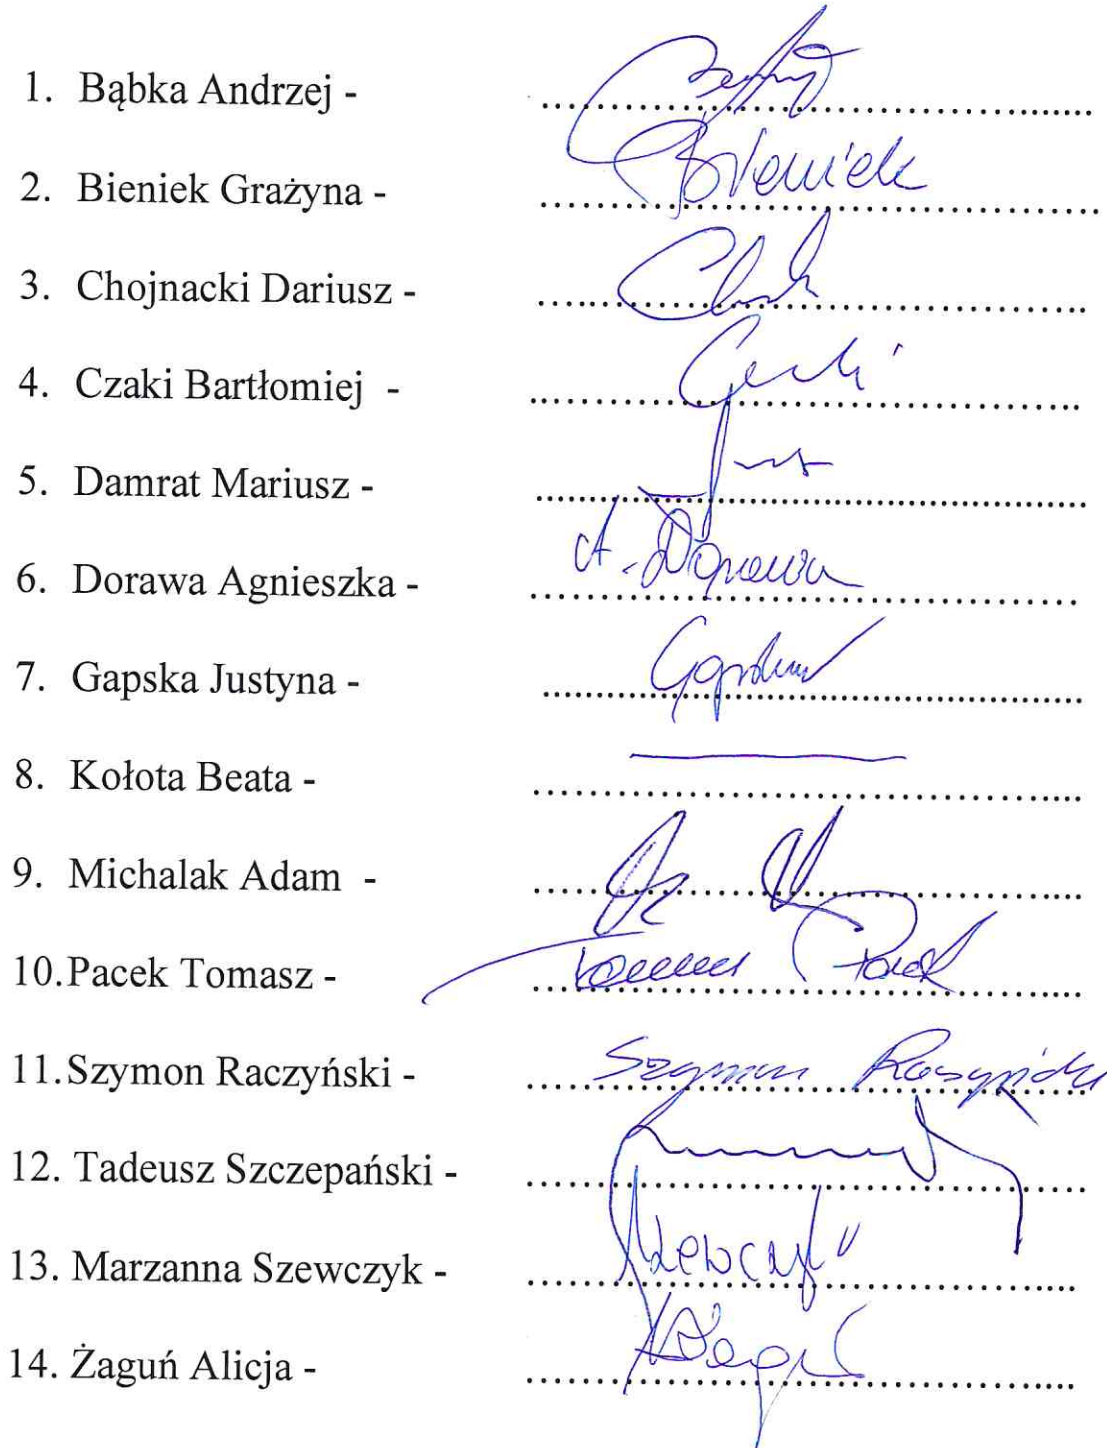 1. Bąbka Andrzej -
2. Bieniek Grażyna - Bieniek
3. Chojnacki Dariusz -
4. Czaki Bartłomiej -
5. Damrat Mariusz -
6. Dorawa Agnieszka - A. Dorawa
7. Gapska Justyna -
8. Kołota Beata -
9. Michalak Adam -
10. Pacek Tomasz - Tomasz Pacek
11. Szymon Raczyński - Szymon Raczyński
12. Tadeusz Szczepański -
13. Marzanna Szewczyk - Szewczyk
14. Żaguń Alicja -